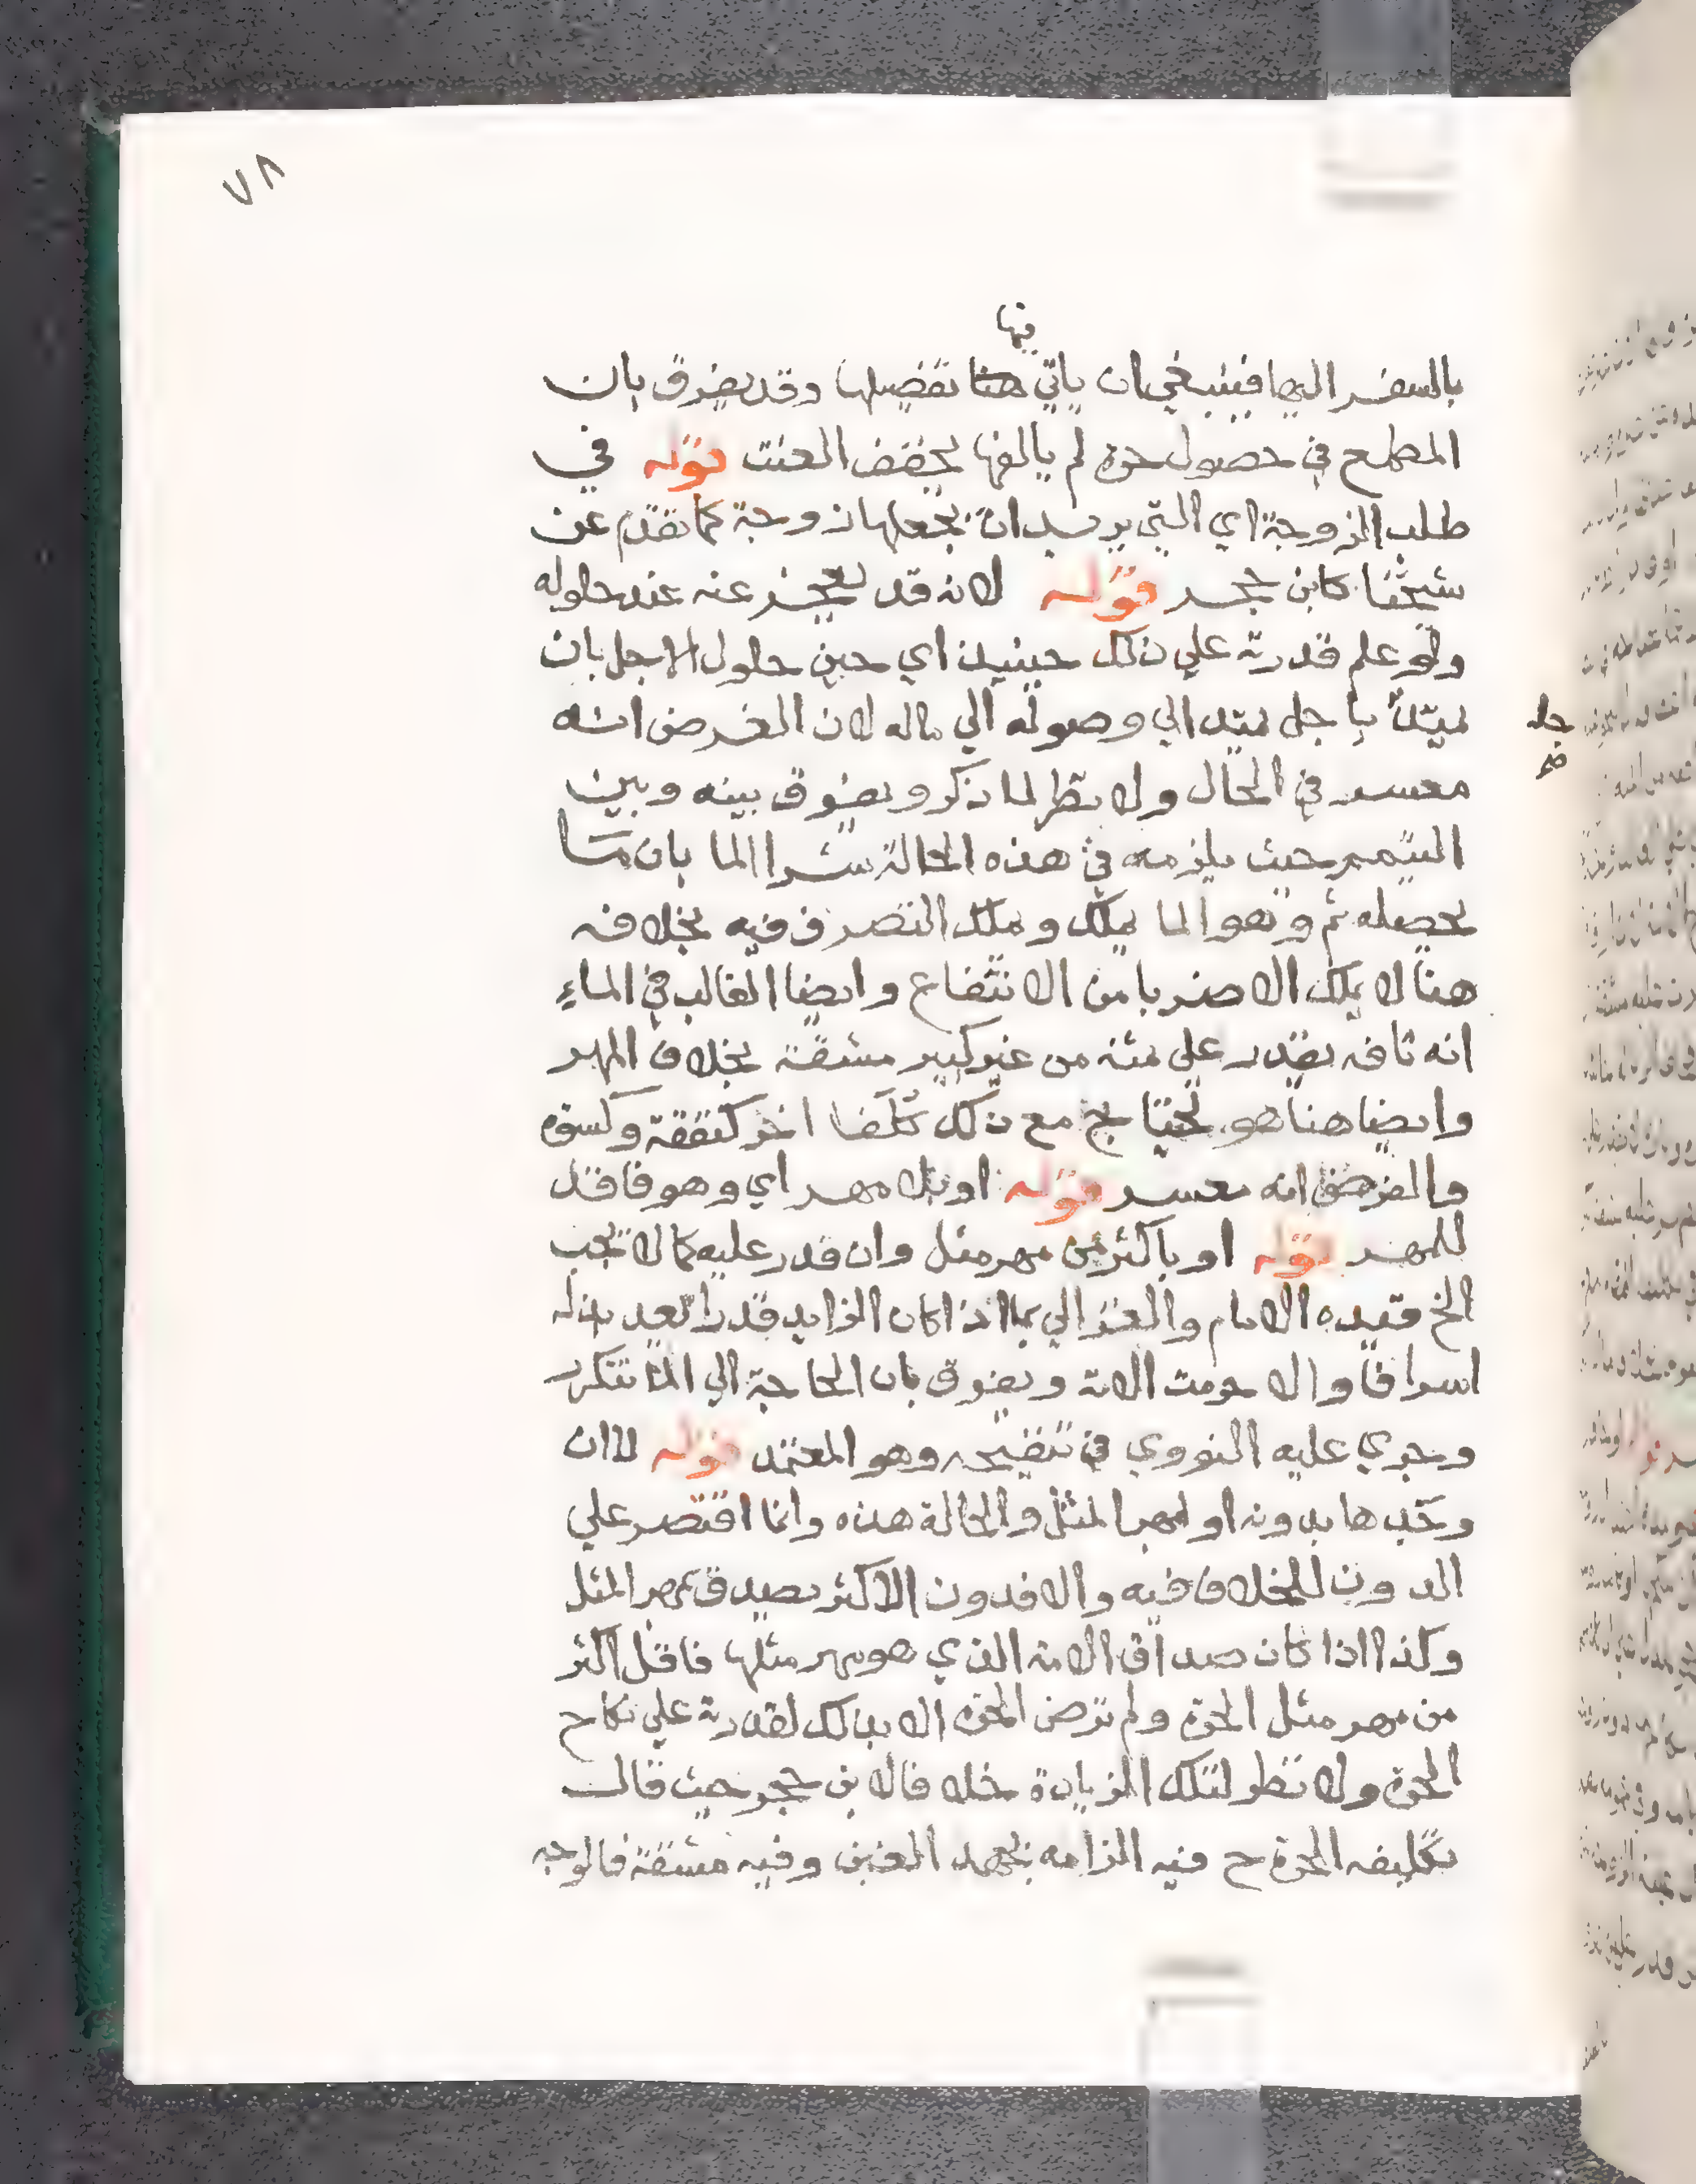 ٧٨
فيها
بالسفر اليها فينبغي ان ياتي هنا تفصيلها وقد يفرق بان
المطمع في حصول حرة لم يالفها يخفف العنت قوله في
طلب الزوجة اي التي يريد ان يجعلها زوجة كما تقدم عن
شيخنا كابن حجر قوله لانه قد يعجز عنه عند حلوله
ولو علم قدرته علي ذلك حينيذ اي حين حلول الاجل بان
باجل يمتد الي وصوله الي ماله لان الفرض انه
معسر في الحال ولا نظر لما ذكر ويفرق بينه وبين
التيمم حيث يلزمه في هذه الحالة شرا الما بان ما
يحصله ثم وهو الما يملك ويملك التصرف فيه بخلافه
هنا لا يملك الا ضربا من الانتفاع وايضا الغالب في الماء
انه تافه يقدر علي ثمنه من غير كبير مشقة بخلاف المهر
وايضا هنا هو يحتاج مع ذلك كلفا اخر كنفقة وكسوة
والفرض انه معسر قوله او بلا مهر اي وهو فاقد
للمهر قوله او باكثر من مهر مثل وان قدر عليه كما لا يجب
الخ قيده الامام والغزالي بما اذا كان الزايد قدرا يعد بذله
اسرافا والا حرمت الامة ويفرق بان الحاجة الي الما تتكرر
وجري عليه النووي في تنقيحه وهو المعتمد قوله لا ان
وجدها بدونه او بمهر المثل والحالة هذه وانما اقتصر علي
الدون للخلاف فيه والا فدون الاكثر يصدق بمهر المثل
وكذا اذا كان صداق الامة الذي هو مهر مثلها فاقل اكثر
من مهر مثل الحرة ولم ترض الحرة الا بذلك لقدرته علي نكاح
الحرة ولا نظر لتلك الزيادة خلافا لابن حجر حيث قال
تكليفه الحرة ح فيه الزامه بجهد الغبن وفيه مشقة فالوجه